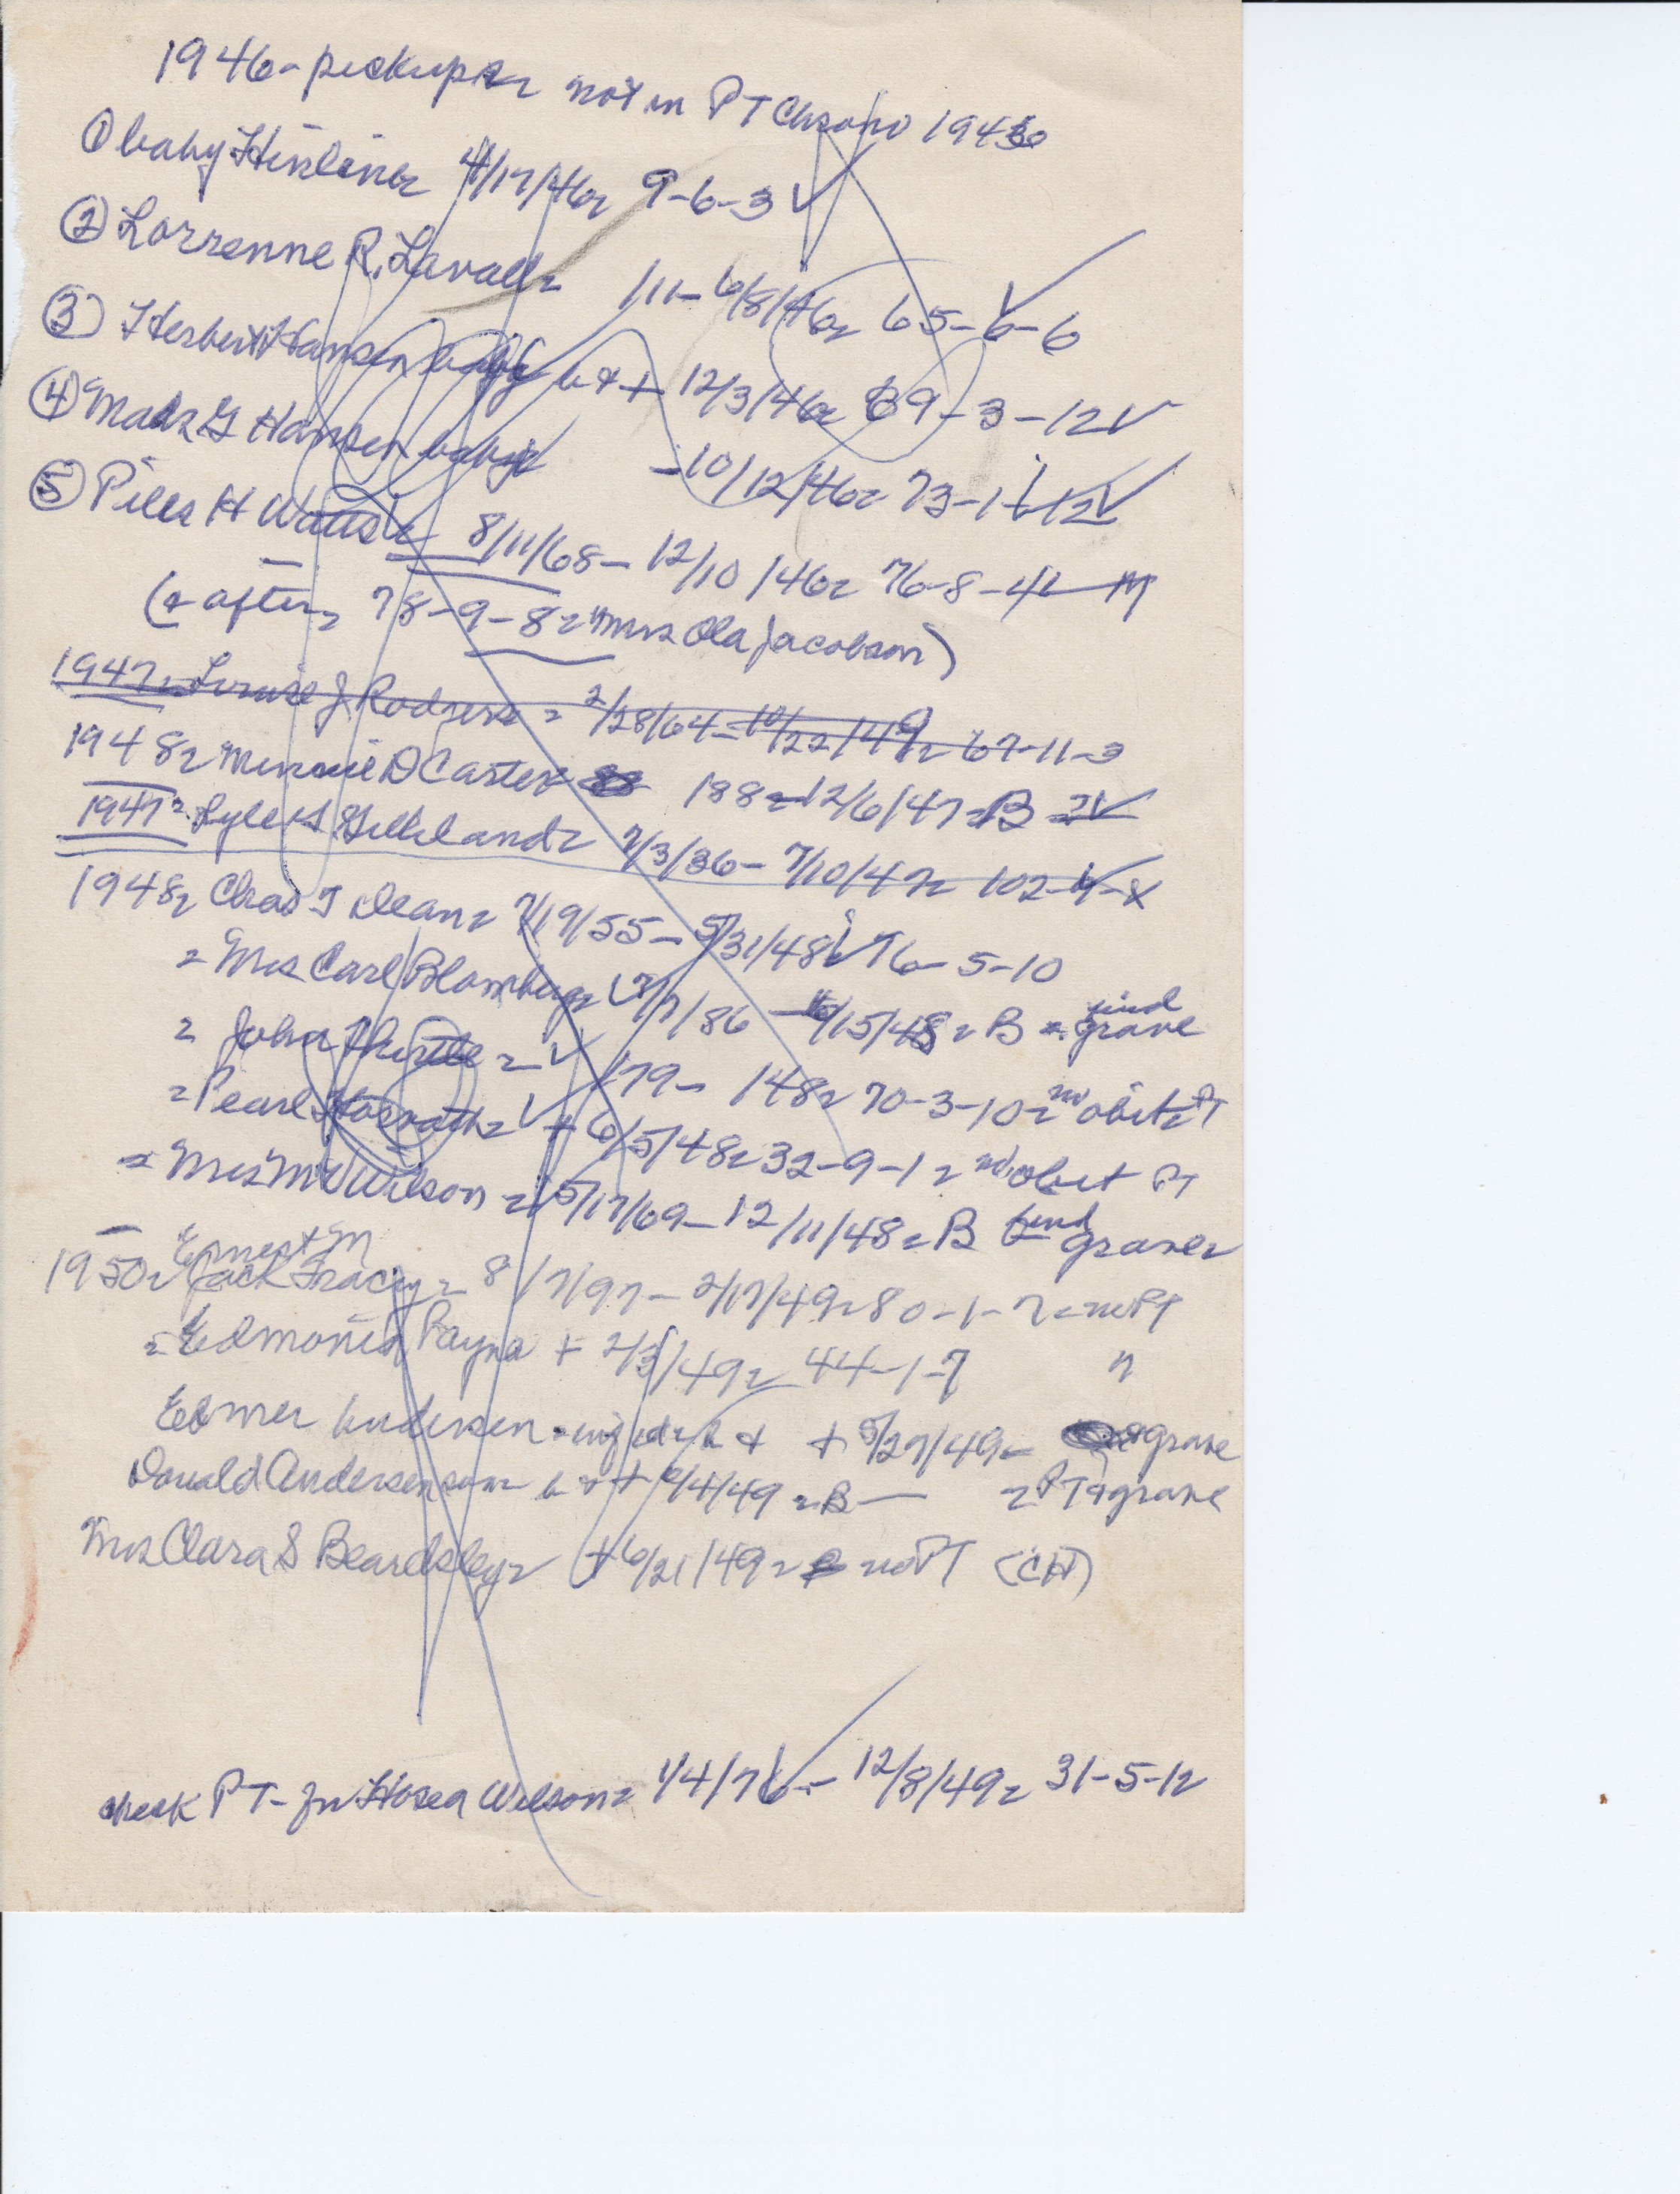 1946 - pickups = not in PT Chrono 1946
① baby Hinline = 4/17/46 = 9-6-3 ✓
② Lorrenne R. Lavall = 111 - 6/8/46 = 65-6-6
③ Herbert Hansen baby b & + 12/3/46 = 69-3-12 ✓
④ Mads G Hansen baby - 10/12/46 = 73-1-12 ✓
⑤ H Watts = 8/11/68 - 12/10/46 = 76-8-4
(& after = 78-9-8 = Mrs Ola Jacobson)
1947 = Louise J = 2/28/64 - 10/22/49 = 67-11-3
1948 = Minnie D Carter 188 = 12/6/47 = B
1947 = Lyle Gilliland = 7/3/36 - 7/10/47 = 102
1948 = Chas T Dean = 7/19/55 - 5/31/48 ✓ 76-5-10
= Mrs Carl Blomberg = ✓ /7/86 - /15/48 = B = find grave
= John = ✓ 179 - 148 = 70-3-10 = no obit = PT
= Pearl = ✓ + 6/5/48 = 32-9-1 = no obit PT
= Mrs Wilson = 5/17/69 - 12/11/48 = B find grave =
1950 = Ernest M Jack Tracy = 8/7/97 - 2/17/49 = 80-1-7 = no PT
= Edmond Payne + 2/3/49 = 44-1-7 "
Andersen + 5/27/49 = grave
Donald Andersen son = b & + /4/49 = B — = PT & grave
Mrs Clara S Beardsley = + 6/21/49 = no PT (CH)
check PT - for Hosea Wilson = 1/4/76 - 12/8/49 = 31-5-12